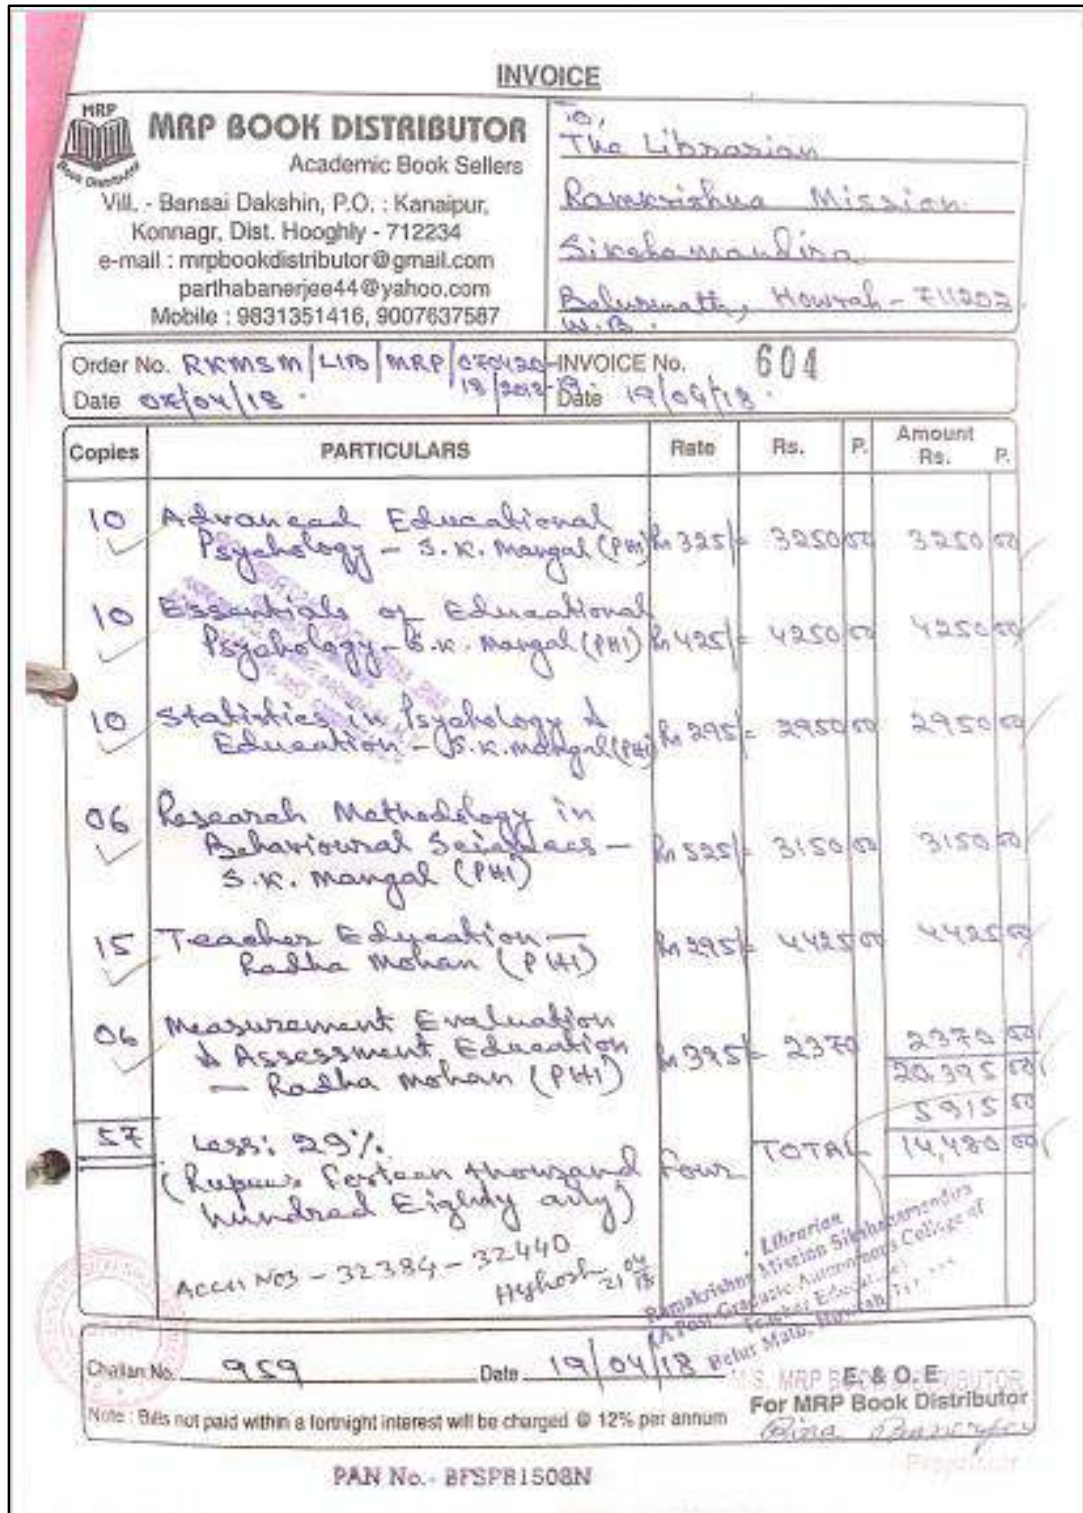 INVOICE
MRP
Book Distributor
MRP BOOK DISTRIBUTOR
Academic Book Sellers
Vill. - Bansai Dakshin, P.O. : Kanaipur,
Konnagr, Dist. Hooghly - 712234
e-mail : mrpbookdistributor@gmail.com
parthabanerjee44@yahoo.com
Mobile : 9831351416, 9007637587
To,
The Librarian
Ramkrishna Mission
Sikshamandira
Belurmath, Howrah - 711202
W.B.
Order No. RKMSM/LIB/MRP/070420
18/2018-19
Date 07/04/18.
INVOICE No. 604
Date 19/04/18.
Copies PARTICULARS Rate Rs. P. Amount Rs. P.
10 Advanced Educational
Psychology - S.K. Mangal (PHI) Rs 325/= 3250 00 3250 00
10 Essentials of Educational
Psychology - S.K. Mangal (PHI) Rs 425/= 4250 00 4250 00
10 Statistics in Psychology &
Education - S.K. Mangal (PHI) Rs 295/= 2950 00 2950 00
06 Research Methodology in
Behavioural Sciences - Rs 525/= 3150 00 3150 00
S.K. Mangal (PHI)
15 Teacher Education -
Radha Mohan (PHI) Rs 295/= 4425 00 4425 00
06 Measurement Evaluation
& Assessment Education Rs 395/= 2370 2370 00
- Radha Mohan (PHI) 20,395 00
5915 00
57 Less: 29% TOTAL 14,480 00
(Rupees Forteen thousand Four
hundred Eighty only)
Accn Nos - 32384 - 32440
21/04/18
Librarian
Ramakrishna Mission Sikshanamandira
(A Post-Graduate Autonomous College of
Teacher Education)
Belur Math, Howrah
Challan No. 959 Date 19/04/18
Note : Bills not paid within a fortnight interest will be charged @ 12% per annum
M/S. MRP BOOK DISTRIBUTOR
E. & O. E.
For MRP Book Distributor
Proprietor
PAN No.- BFSPB1508N